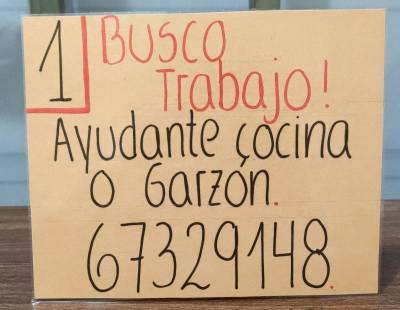 1 Busco
Trabajo!
Ayudante çocina
o Garzón.
67329148.